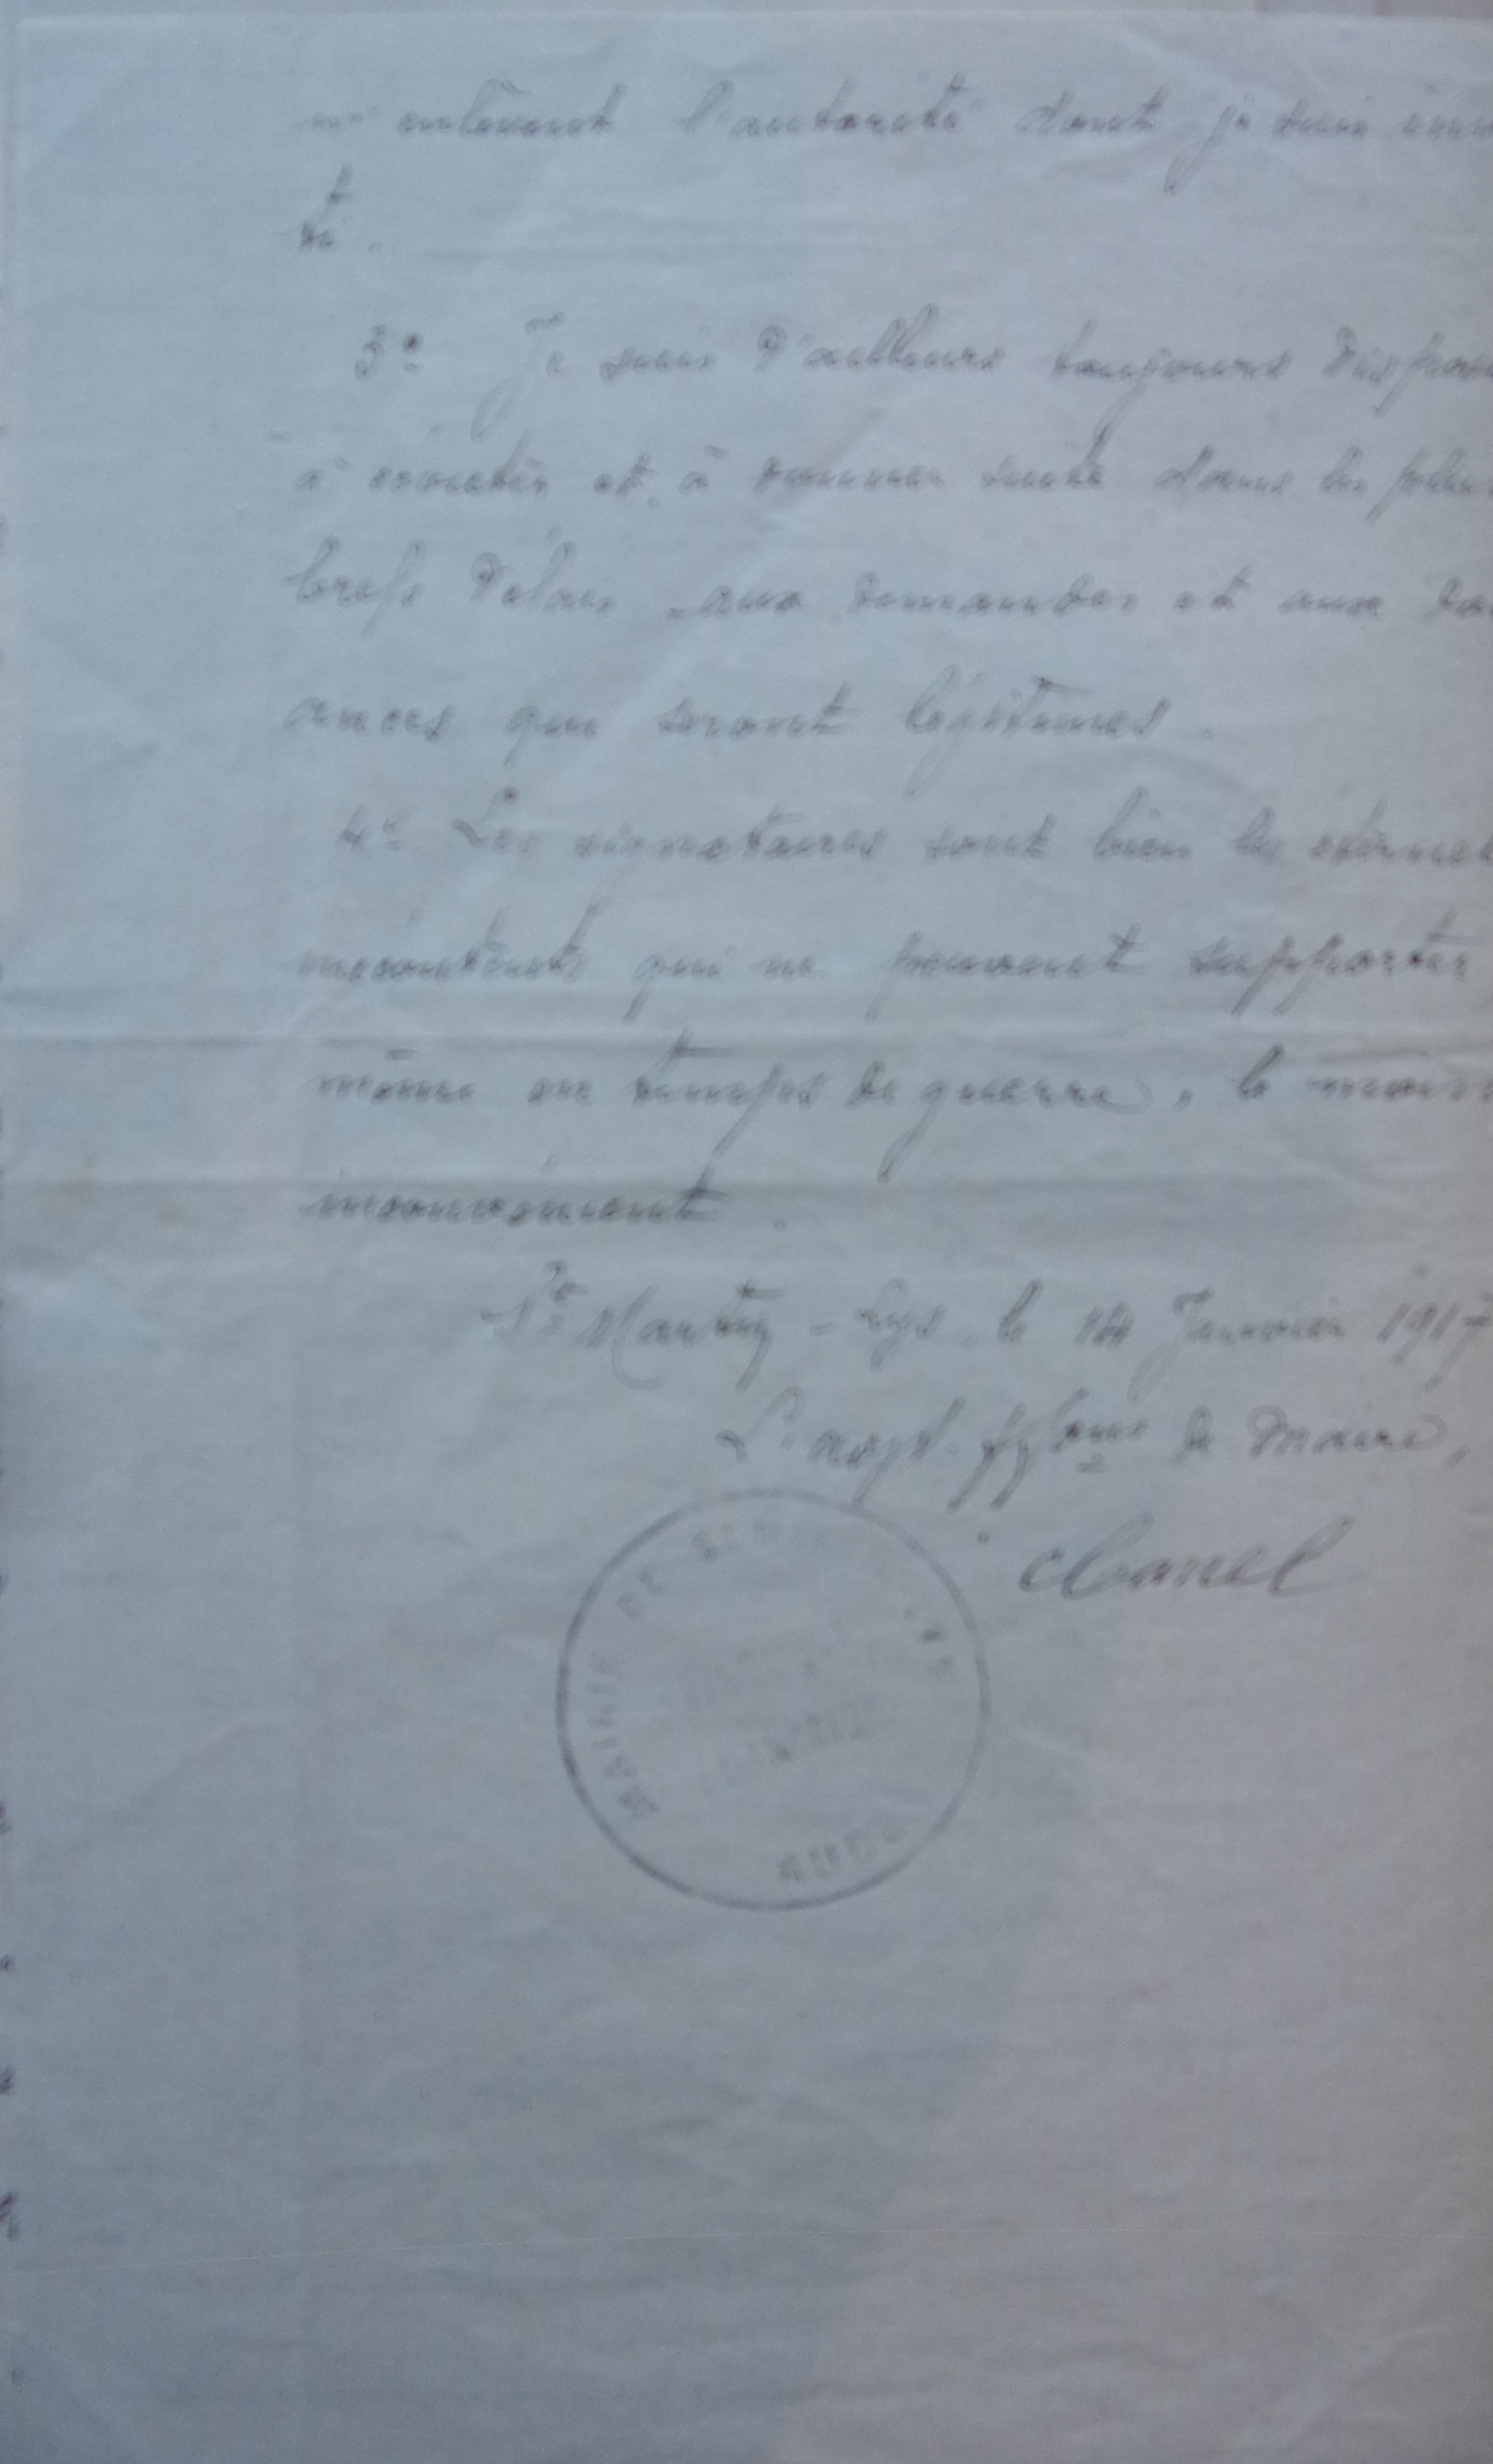 m'enlèvent l'autorité dont je suis
té.
3° Je suis d'ailleurs toujours dispos
à écouter et à donner suite dans les plus
brefs délais aux demandes et aux do
ances qui seront légitimes.
4° Les signataires sont bien les éternel
mécontents qui ne peuvent supporter
même en temps de guerre, le moin
inconvénient.
St Martin-Lys, le 14 Janvier 1917
L'adjt. ff ons de Maire,
MAIRIE DE ST MARTIN-LYS
AUDE